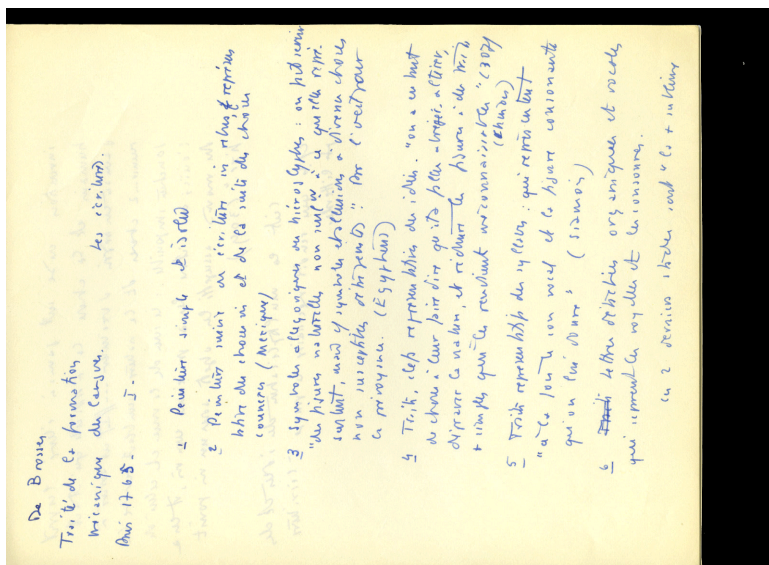 De Brosses
Traité de la formation
mécanique des langues. Les écritures.
Paris 1765. I.
1 Peinture simple et isolée
2 Peinture suivie ou écriture in rebus représen
tative des choses et de la suite des choses
connexes (Mexique)
3 Symboles allégoriques ou hiéroglyphes : on
"des figures naturelles non seult à ce qu'elles repr.
sentent, mais symboles et allusions à diverses choses
non susceptibles d'être peintes" par l'oeil pour
la prévoyance. (Egyptiens)
4 Traits, clefs représentatives des idées. "on a eu but
de choses à leur faire dire qu'il a fallu abréger, altérer,
dépraver la nature, et réduire les figures à des traits
+ simples qui les rendirent méconnaissables" (307)
(Chinois)
5 Traits représentatifs des syllabes : qui représentent
"à la fois le son vocal et la figure consonante
qui en est " (Siamois)
6 Lettres détachées organiques et vocales
qui expriment les voyelles et les consonnes.
Ces 2 derniers "la +